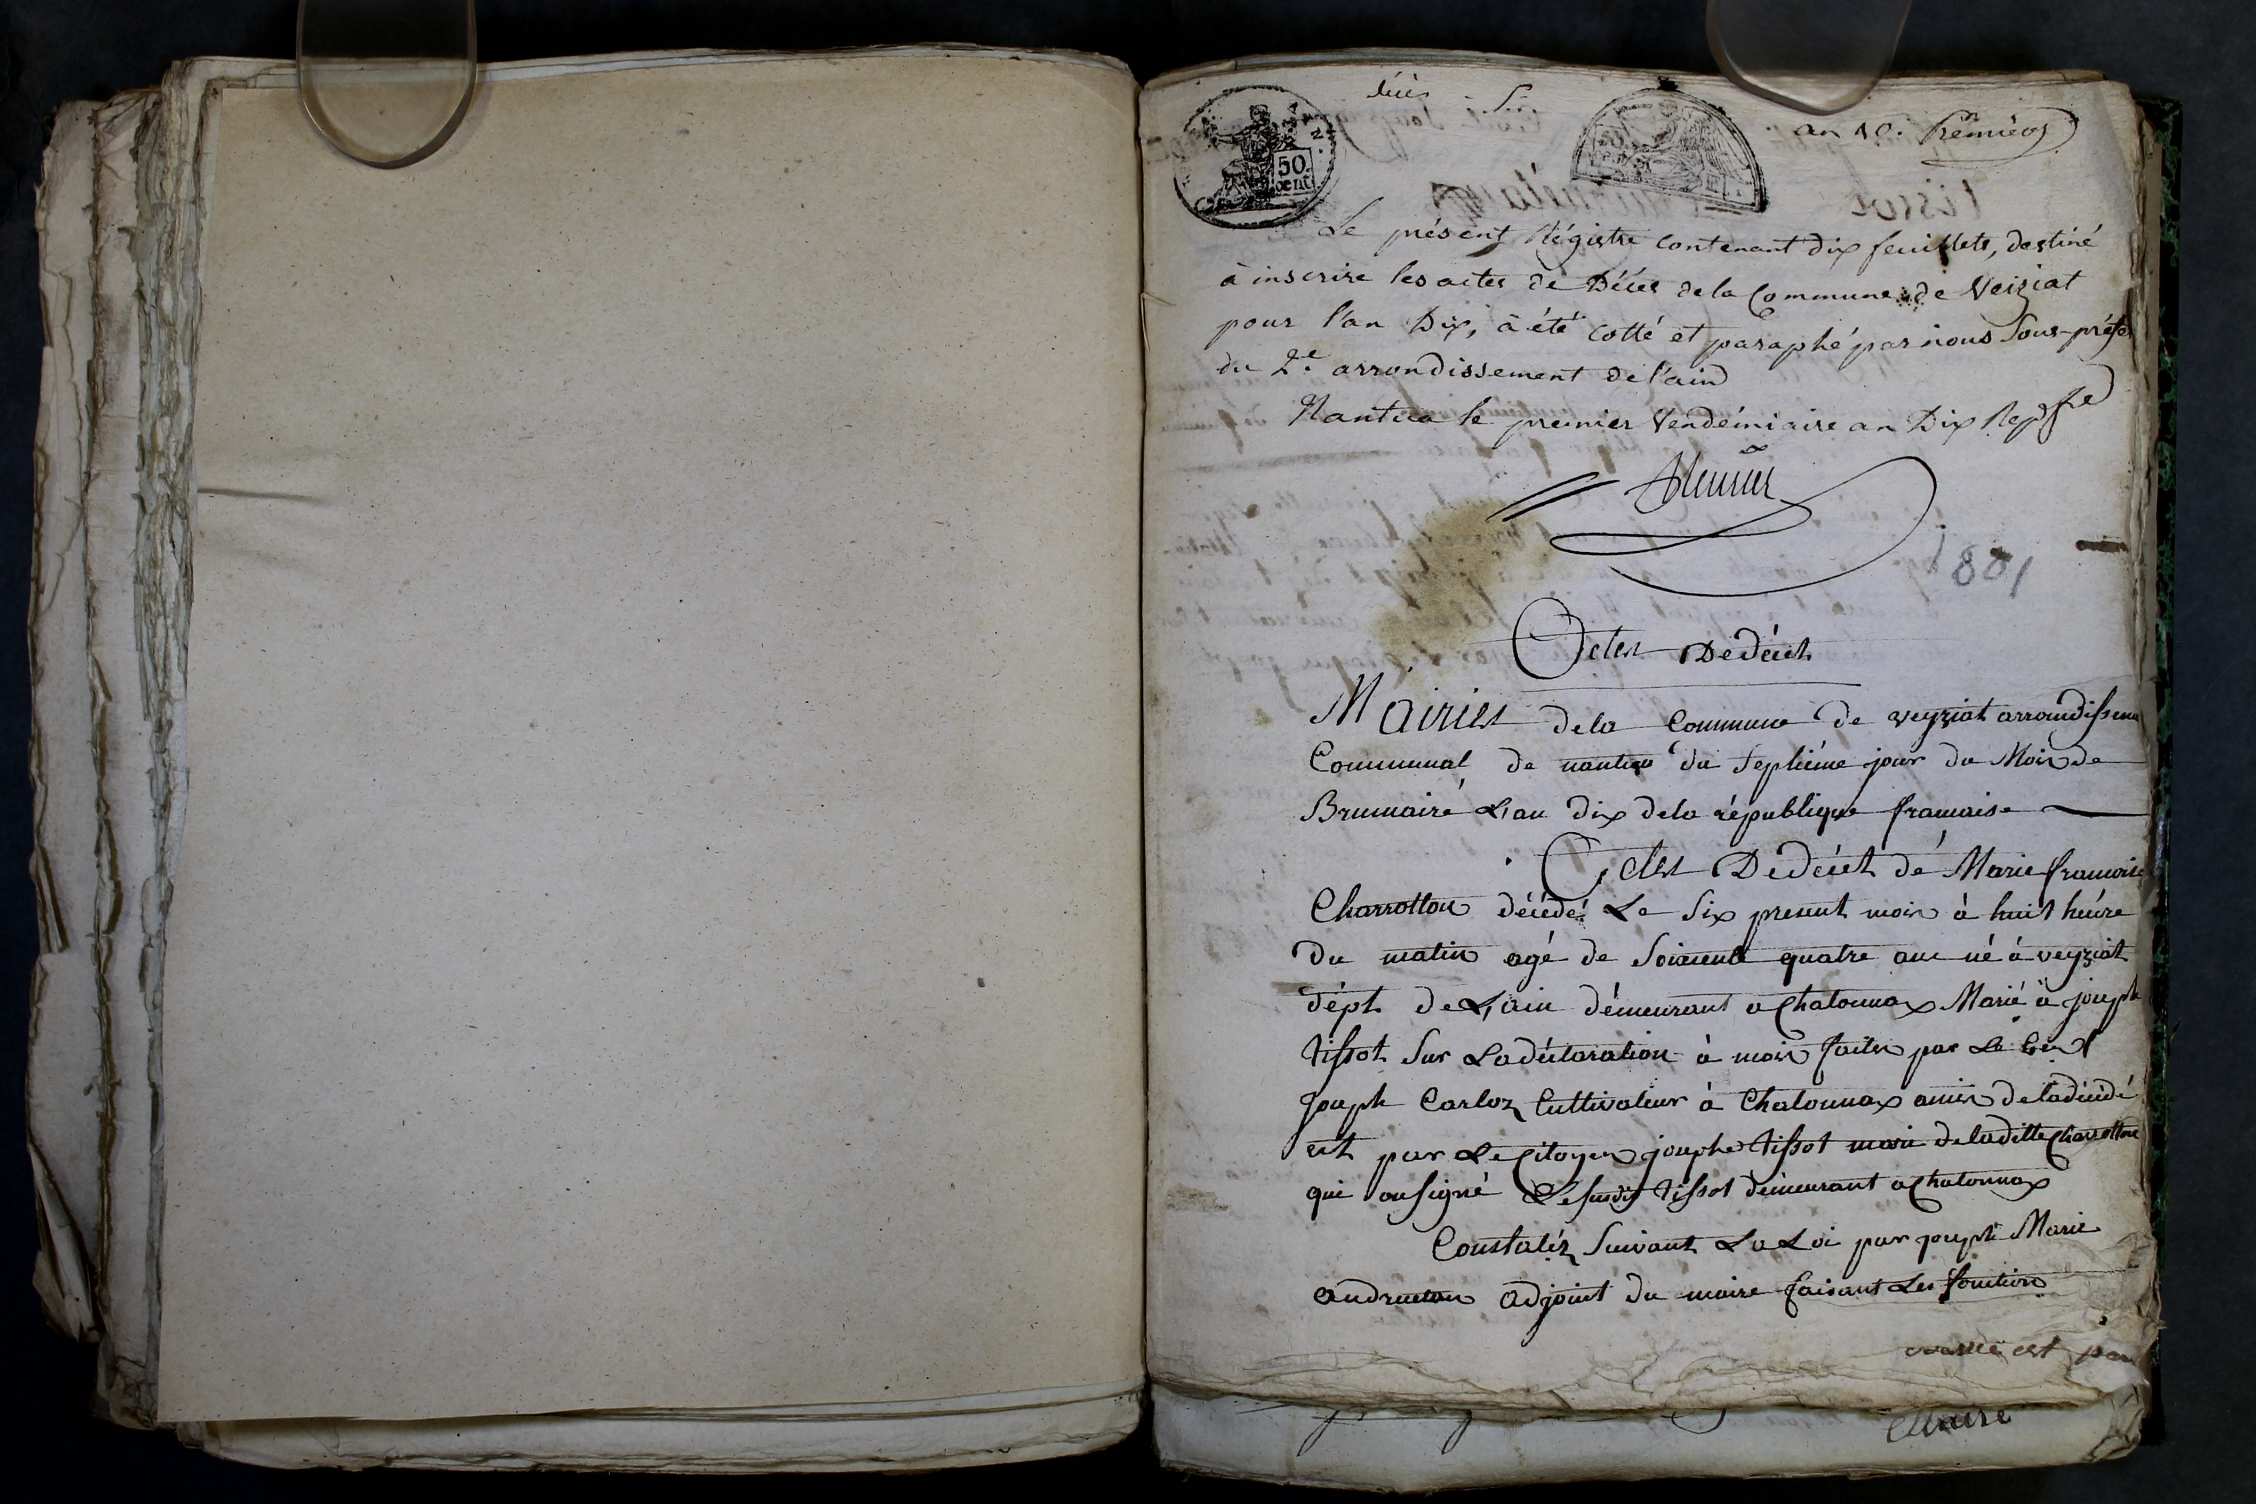 an 10. Premier
50
cent
Le présent Régistre contenant dix feuillets, destiné
à inscrire les actes de Décès de la Commune de Veiziat
pour l'an Dix, à été cotté et paraphé par nous Sous-préfet
du 2e. arrondissement de l'ain
Nantua le premier Vendémiaire an Dix Rep. fre
1801
Actes De décét
Mairies de la Commune de veyziat arrondissem
Communal de nantua du Septiéme jour du Mois de
Brumairé L'an dix de la république francaise
Actes De décét dé Marie francoise
Charrotton décédé Le Six présent mois à huit heúre
du matin agé de Soixente quatre ans né à veyziat
dépt de L'ain démeurant a Chatonnax Marié à joseph
tissot Sur La déclaration à mois faites par Le
Joseph Carloz Cultivateur à Chatonnax amis de la décédé
est par Le Citoyen josephe tissot marie de la ditte Charrotton
qui on signé Le susdit tissot démeurant a Chatonnax
Constatéz Suivant La Loi par joseph Marie
adjoint du maire faisant Les fonction
est par